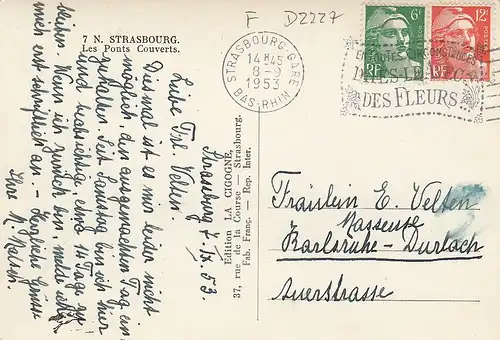 F D2227
7 N. STRASBOURG.
Les Ponts Couverts.
STRASBOURG-GARE
14H45
8-9
1953
BAS-RHIN
6F
12F
POSTES
RF
RF
EN TOUTES CIRCONSTANCES
DITES-LE AVEC
DES FLEURS
Strassburg 7. IX. 53.
Liebe Frl. Velten.
Diesmal ist es mir leider nicht
möglich, den ausgemachten Tag ein-
zuhalten. Seit Samstag bin ich hier
und beabsichtige, etwa 14 Tage zu
bleiben. Wenn ich zurück bin, melde ich
mich erst schriftlich an. - Herzliche Grüsse
Ihre
Edition LA CIGOGNE,
37, rue de la Course — Strasbourg.
Fab. Franç. — Rep. Inter.
Fräulein E. Velten
Masseuse
Karlsruhe-Durlach
Auerstrasse